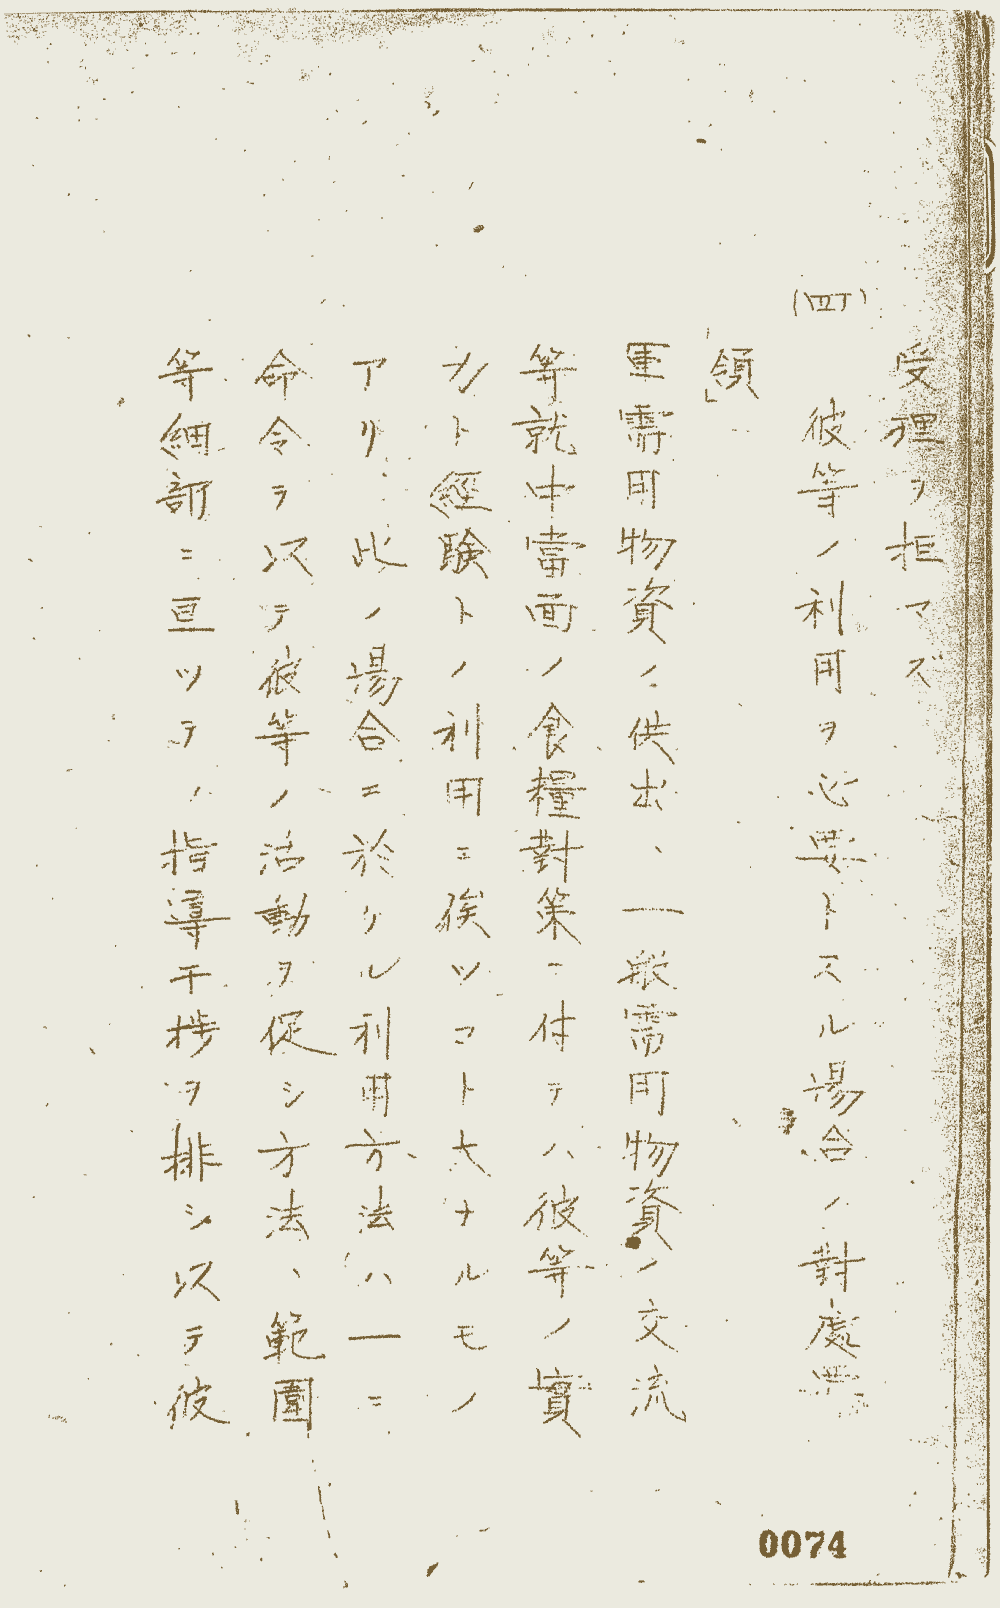 受理ヲ拒マズ
(四) 彼等ノ利用ヲ必要トスル場合ノ對處要
領」
軍需用物資ノ供出、一般需用物資ノ交流
等就中當面ノ食糧對策ニ付テハ彼等ノ實
力ト經驗トノ利用ニ俟ツコト大ナルモノ
アリ、此ノ場合ニ於ケル利用方法ハ一ニ
命令ヲ以テ彼等ノ活動ヲ促シ方法、範圍
等細部ニ亘ツテノ指導干捗ヲ排シ以テ彼
0074